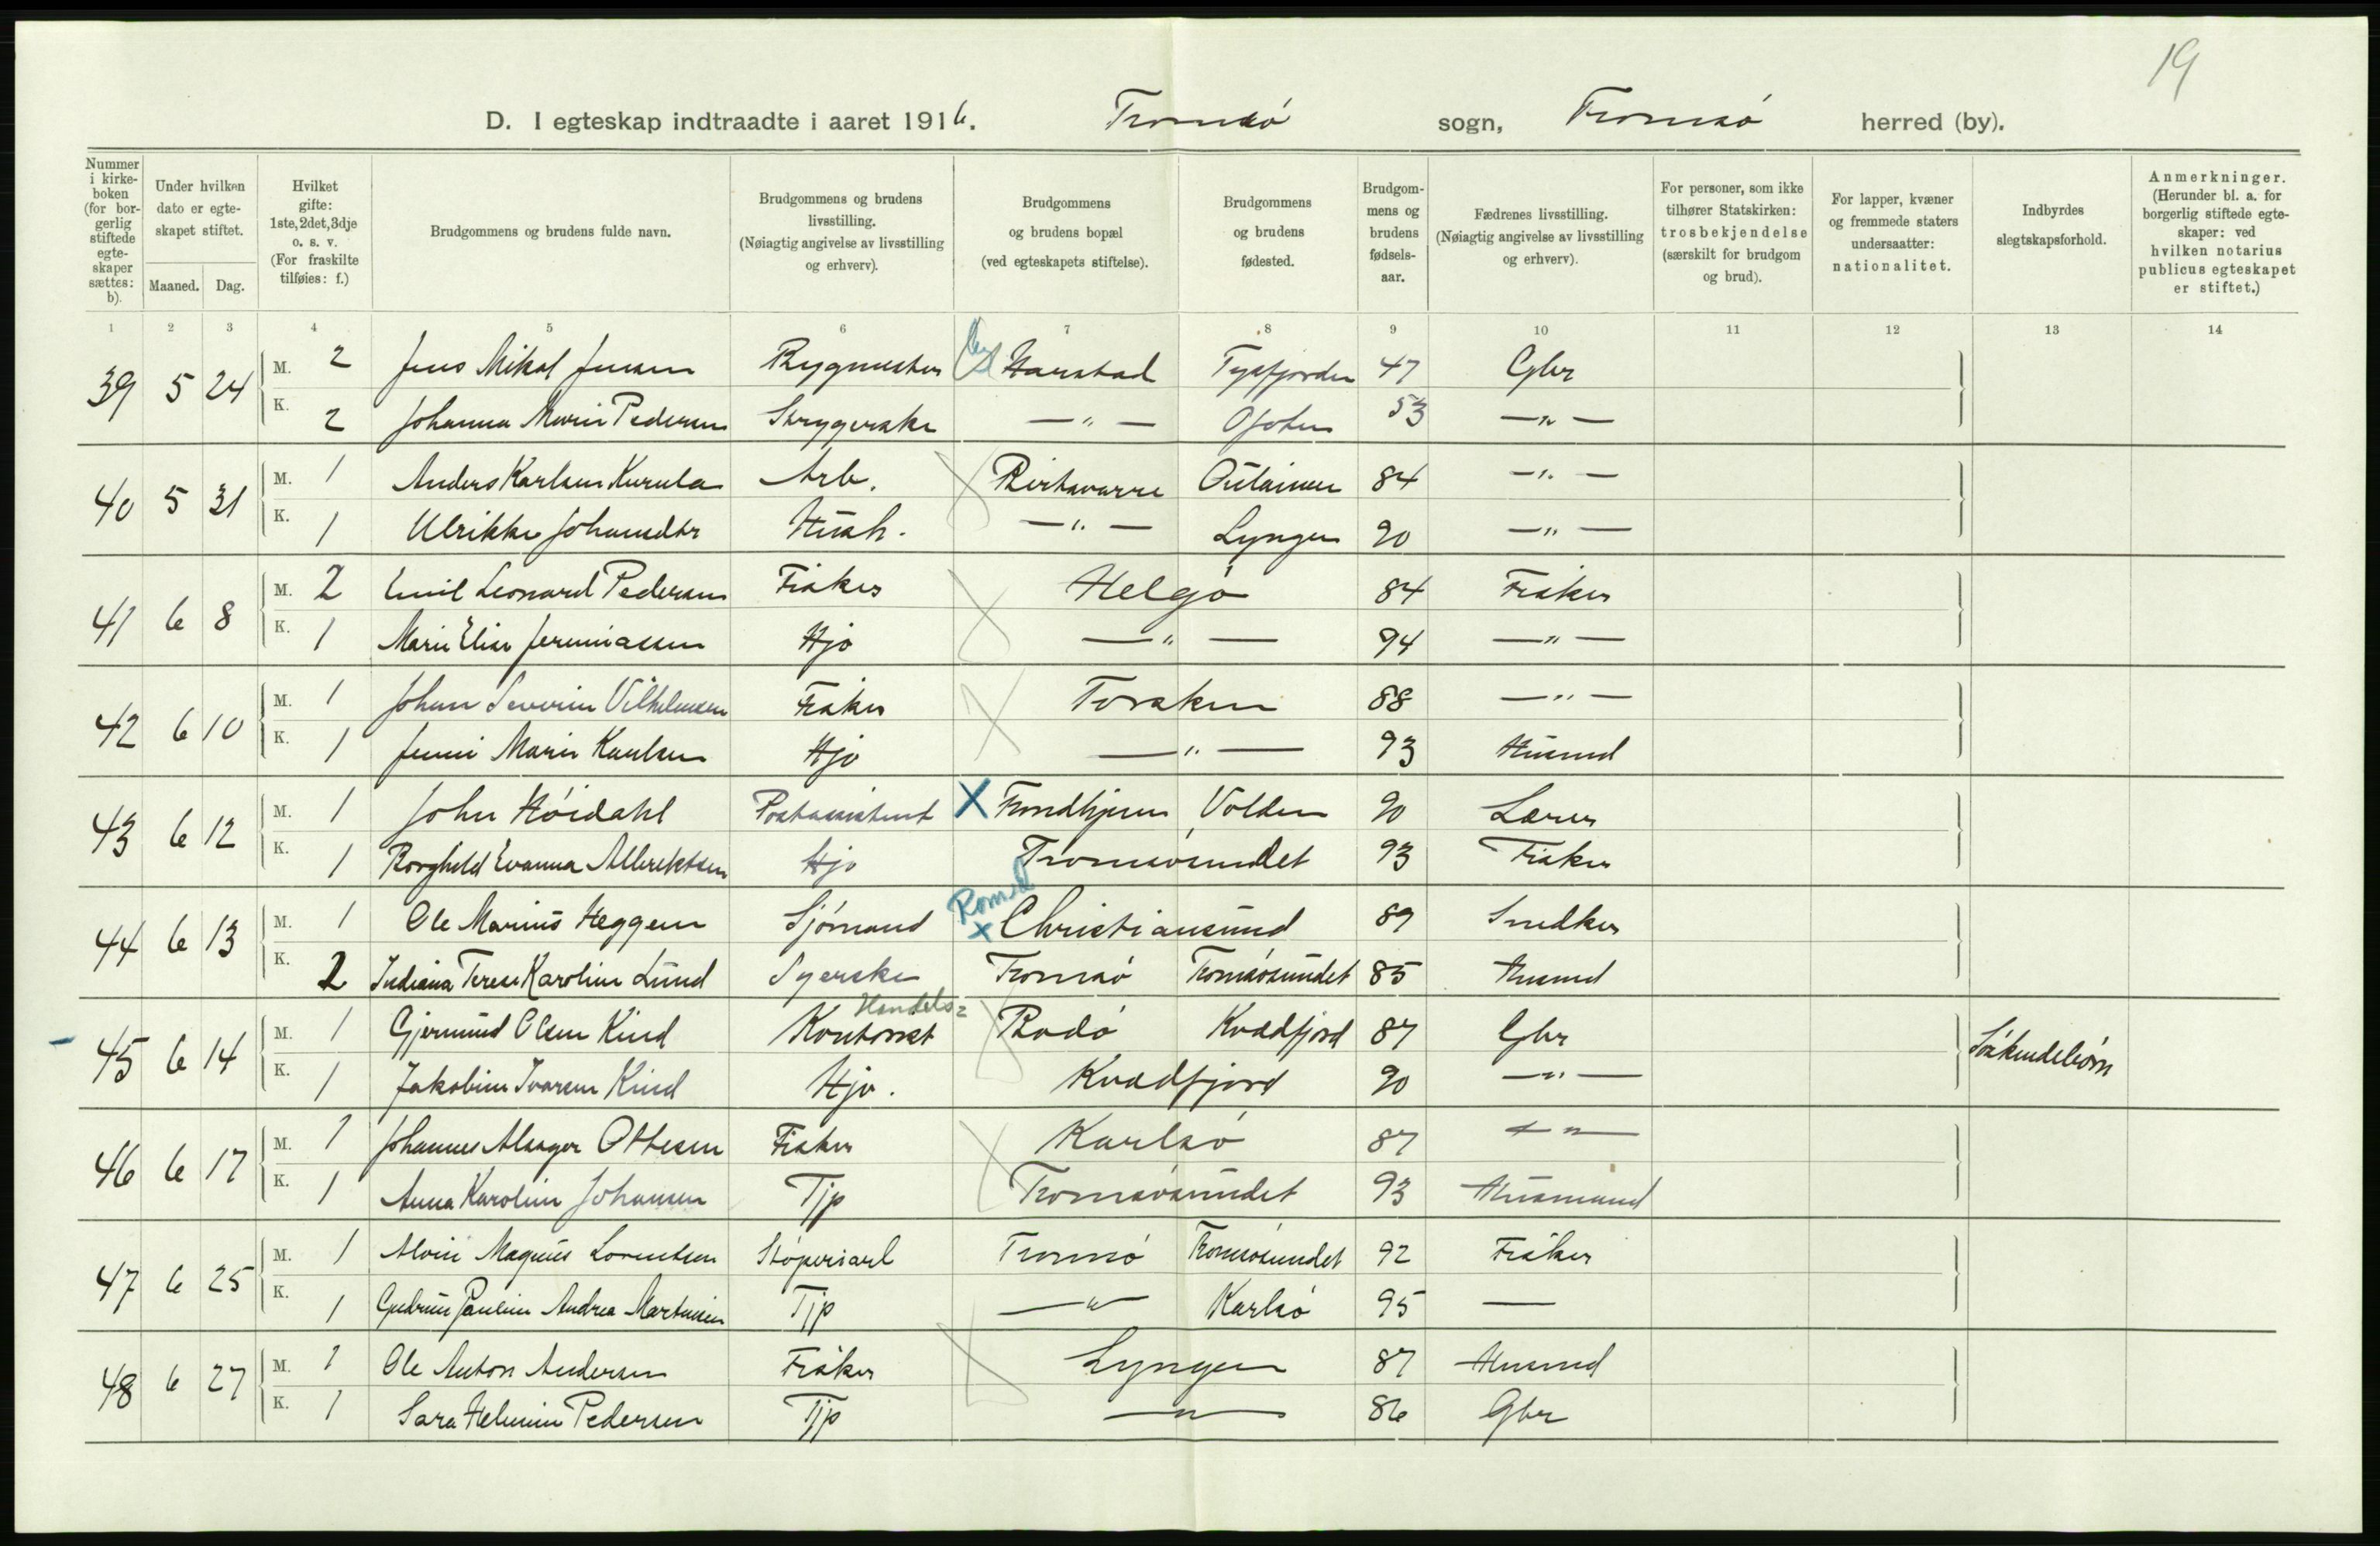 19
D. I egteskap indtraadte i aaret 1916. Tromsö sogn, Tromsö herred (by).
Nummer i kirkeboken (for borgerlig stiftede egteskaper sættes: b).
Under hvilken dato er egteskapet stiftet.
Maaned. Dag.
Hvilket gifte: 1ste, 2det, 3dje o. s. v. (For fraskilte tilføies: f.)
Brudgommens og brudens fulde navn.
Brudgommens og brudens livsstilling. (Nøiagtig angivelse av livsstilling og erhverv).
Brudgommens og brudens bopæl (ved egteskapets stiftelse).
Brudgommens og brudens fødested.
Brudgommens og brudens fødselsaar.
Fædrenes livsstilling. (Nøiagtig angivelse av livsstilling og erhverv).
For personer, som ikke tilhører Statskirken: trosbekjendelse (særskilt for brudgom og brud).
For lapper, kvæner og fremmede staters undersaatter: nationalitet.
Indbyrdes slegtskapsforhold.
Anmerkninger. (Herunder bl. a. for borgerlig stiftede egteskaper: ved hvilken notarius publicus egteskapet er stiftet.)
1 2 3 4 5 6 7 8 9 10 11 12 13 14
39 5 24 M. 2 Jens Mikal Jensen Bygmester Harstad Tysfjorden 47 Gbr
K. 2 Johanna Marie Pedersen Strygerske —"— Ofoten 53 —"—
40 5 31 M. 1 Anders Karlsen Kurula Arb. Birtavarre 84 —"—
K. 1 Ulrikke Johansdtr Hush. —"— Lyngen 90 —"—
41 6 8 M. 2 Emil Leonard Pedersen Fisker Helgö 84 Fisker
K. 1 Marie Elise Jeremiassen Hjo —"— 94 —"—
42 6 10 M. 1 Johan Severin Vilhelmsen Fisker Torsken 88 —"—
K. 1 Jenni Marie Karlsen Hjo —"— 93 Husmd
43 6 12 M. 1 John Höidahl Postassistent X Trondhjem Volden 90 Lærer
K. 1 Borghild Evanna Albrektsen Hjo Tromsösundet 93 Fisker
44 6 13 M. 1 Ole Marius Heggem Sjömand Romsd x Christiansund 89 Snedker
K. 2 Indiana Terese Karoline Lund Syerske Tromsö Tromsösundet 85 Husmd
45 6 14 M. 1 Gjermund Olsen Kind Handels= Kontorist Bodö Kvædfjord 87 Gbr Söskendebörn
K. 1 Jakobine Ivarsen Kind Hjo. Kvædfjord 90 —"—
46 6 17 M. 1 Johannes Alsager Ottesen Fisker Karlsö 87 —"—
K. 1 Anna Karoline Johansen Tjp Tromsösundet 93 Husmand
47 6 25 M. 1 Alvin Magnus Lorentsen Støperiarb Tromsö Tromsösundet 92 Fisker
K. 1 Gudrun Pauline Andrea Martinsen Tjp —"— Karlsö 95 —
48 6 27 M. 1 Ole Anton Andersen Fisker Lyngen 87 Husmd
K. 1 Sara Helmine Pedersen Tjp —"— 86 Gbr